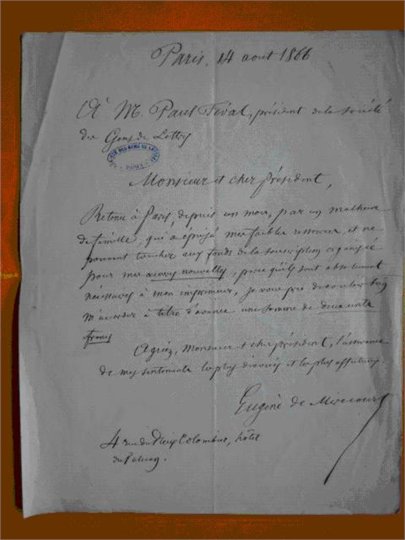 Paris, 14 aout 1866
À M. Paul Féval, président de la société
des Gens de Lettres
Monsieur et cher président,
Retenu à Paris, depuis un mois, par un malheur
de famille, qui a épuisé mes faibles ressources, et ne
pouvant toucher aux fonds de la souscription organisée
pour mes œuvres nouvelles, puisqu'ils sont absolument
nécessaires à mon imprimeur, je vous prie de vouloir bien
m'accorder à titre d'avance une somme de deux cents
francs
Agréez, Monsieur et cher président, l'assurance
de mes sentiments les plus dévoués et les plus affectueux.
Eugène de Mirecourt
4 rue du Vieux Colombier, hôtel
du